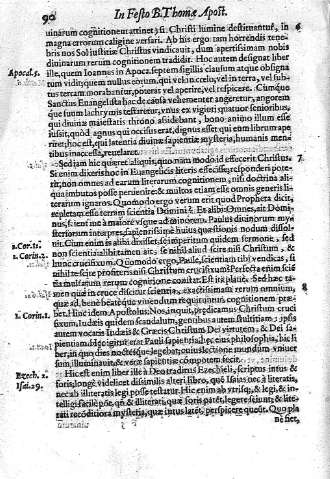 90 In Festo B. Thomæ Apost.
uinarum cognitionem attinet) si Christi lumine destituantur, in 6
magna errorum caligine versari. Ab his ergo tam horrendis tene-
bris nos Sol iustitiæ Christus vindicauit, dum apertissimam nobis
diuinarum rerum cognitionem tradidit. Hoc autem designat liber
Apocal. 5. ille, quem Ioannes in Apoca. septem sigillis clausum atque obsigna
tum vidit; quem nullus eorum, qui vel in cœlo, vel in terra, vel sub-
tus terram morabantur, poterat vel aperire, vel respicere. Cumque
Sanctus Euangelista hac de causa vehementer angeretur, angorem
que suum lachrymis testaretur, vnus ex viginti quatuor senioribus,
qui diuinæ maiestatis throno assidebant, bono animo illum esse
iussit, quòd agnus qui occisus erat, dignus esset qui eum librum ape
riret; hoc est, qui latentia diuinæ sapientiæ mysteria, humanis men-
tibus inaccessa, reuelaret.
Sed iam hic quæret aliquis, quo nam modo id effecerit Christus. 7.
Si enim dixeris hoc in Euangelicis literis effecisse, responderi pote-
rit, non omnes ad earum literarum cognitionem, nisi doctrina ali-
qua imbutos posse peruenire: & multos etiam esse omnis generis li-
terarum ignaros. Quomodo ergo verum erit quod Propheta dicit,
repletam esse terram scientia Domini? Et alibi: Omnes, ait Domi-
nus, scient me à maiore vsque ad minorem. Paulus diuinorum my-
steriorum interpres, sapientissimè huius quæstionis nodum dissol-
1. Cor. 11. uit. Cùm enim is alibi dixisset, se imperitum quidem sermone, sed
1. Corin. 2. non scientia: alibi tamen ait, se nihil aliud scire nisi Christum, &
hunc crucifixum. Quomodo ergo, Paule, scientiam tibi vendicas, si
nihil te scire profiteris nisi Christum crucifixum? Perfecta enim scie
tia multarum rerum cognitione constat. Est ita planè. Sed hæc ta-
men quæ in cruce discitur scientia, exactissimam rerum omnium, 8
quæ ad bene beatéque viuendum requiruntur, cognitionem præ-
1. Corin. 1. bet. Hinc idem Apostolus: Nos, inquit, prædicamus Christum cruci
fixum, Iudæis quidem scandalum, gentibus autem stultitiam; ipsis
autem vocatis Iudæis & Græcis Christum Dei virtutem, & Dei sa-
pientiam. Id igitur erat Pauli sapientia, hæc eius philosophia, hic li
ber, in quo dies noctésque legebat;
Ezech. 2. Hic est enim liber ille à Deo traditus Ezechieli, scriptus intus &
Isai. 29. foris; longè videlicet dissimilis alteri libro, quē Isaias nec à literatis,
nec ab illiteratis legi posse testatur. Hic enim ab vtrisq; & legi, & in-
telligi facilè potest, & illiterati, quæ foris patēt, legere sciunt; & lite-
rati reconditiora mysteria, quæ intus latēt, perspicere queūt. Quo pla
nè fiet,